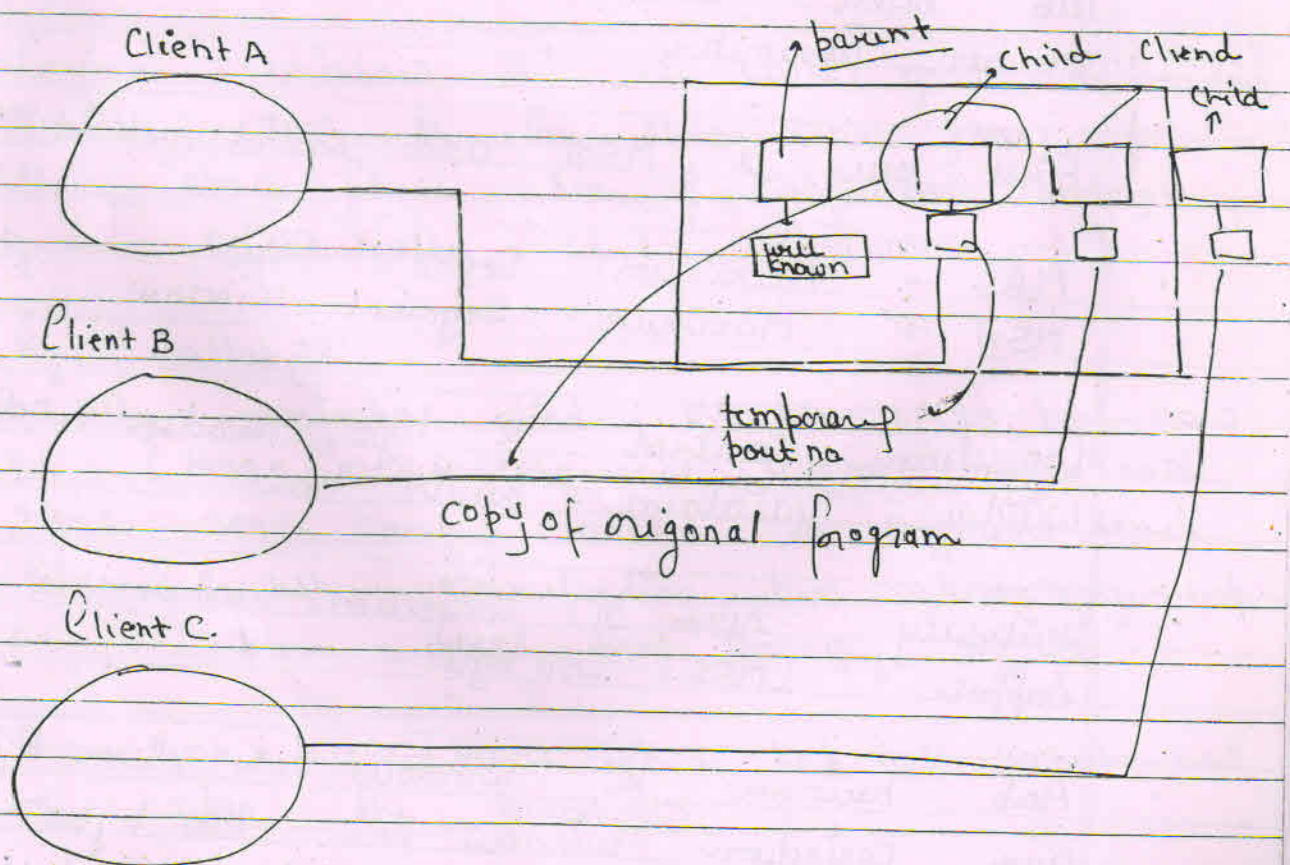 Client A
parent
child
Cliend
child
will
known
Client B
temporary
pout na
copy of origonal Program
Client C.